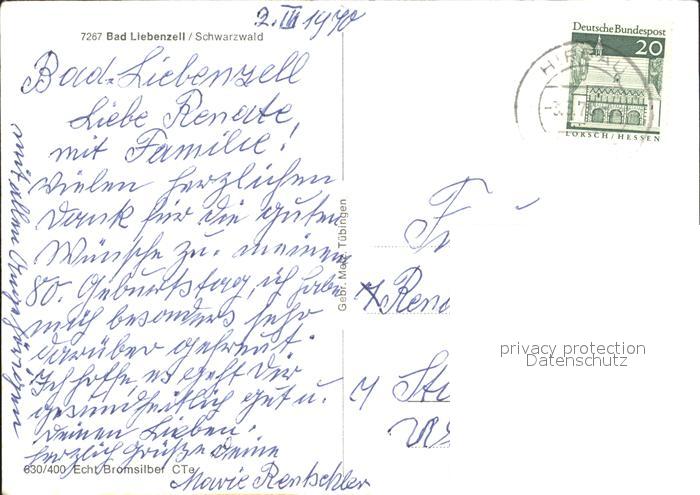 2. III 1970
7267 Bad Liebenzell / Schwarzwald
Bad-Liebenzell
Liebe Renate,
mit Familie!
Vielen herzlichen
Dank für die guten
Wünsche zu meinem
80. Geburtstag, ich habe
mich besonders sehr
darüber gefreut.
Ich hoffe, es geht Dir
gesundheitlich gut u.
Deinen Lieben.
Herzlich grüßt Deine
Marie Rentschler
mit allen Angehörigen
630/400 Echt Bromsilber CTe
Gebr. Metz, Tübingen
Deutsche Bundespost
20
LORSCH/HESSEN
HIRSAU
Fr
7 Rena
7 St
privacy protection
Datenschutz